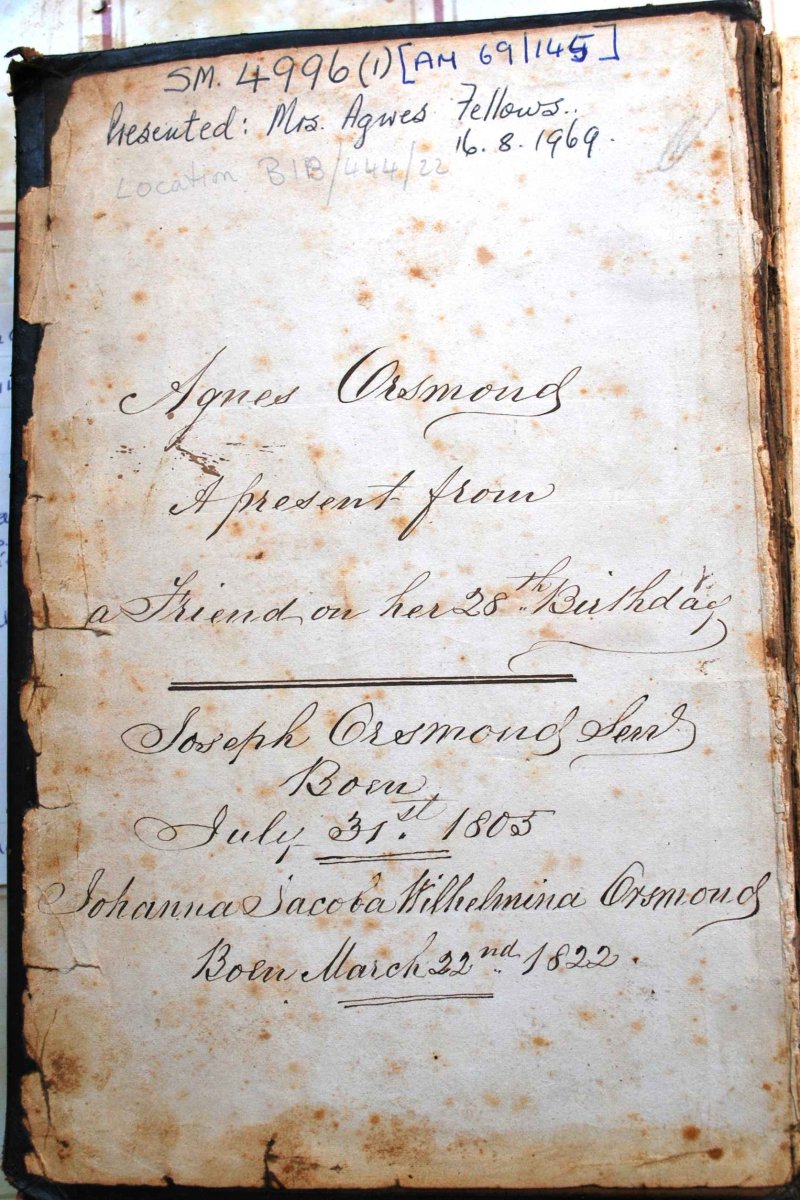 SM. 4996(1) [AM 69/145]
Presented: Mrs. Agnes Fellows..
16. 8. 1969.
Location BIB/444/22
Agnes Orsmond
A present from
a Friend on her 28th Birthday
Joseph Orsmond Senr.
Born
July 31st. 1805
Johanna Jacoba Wilhelmina Orsmond
Born March 22nd. 1822.